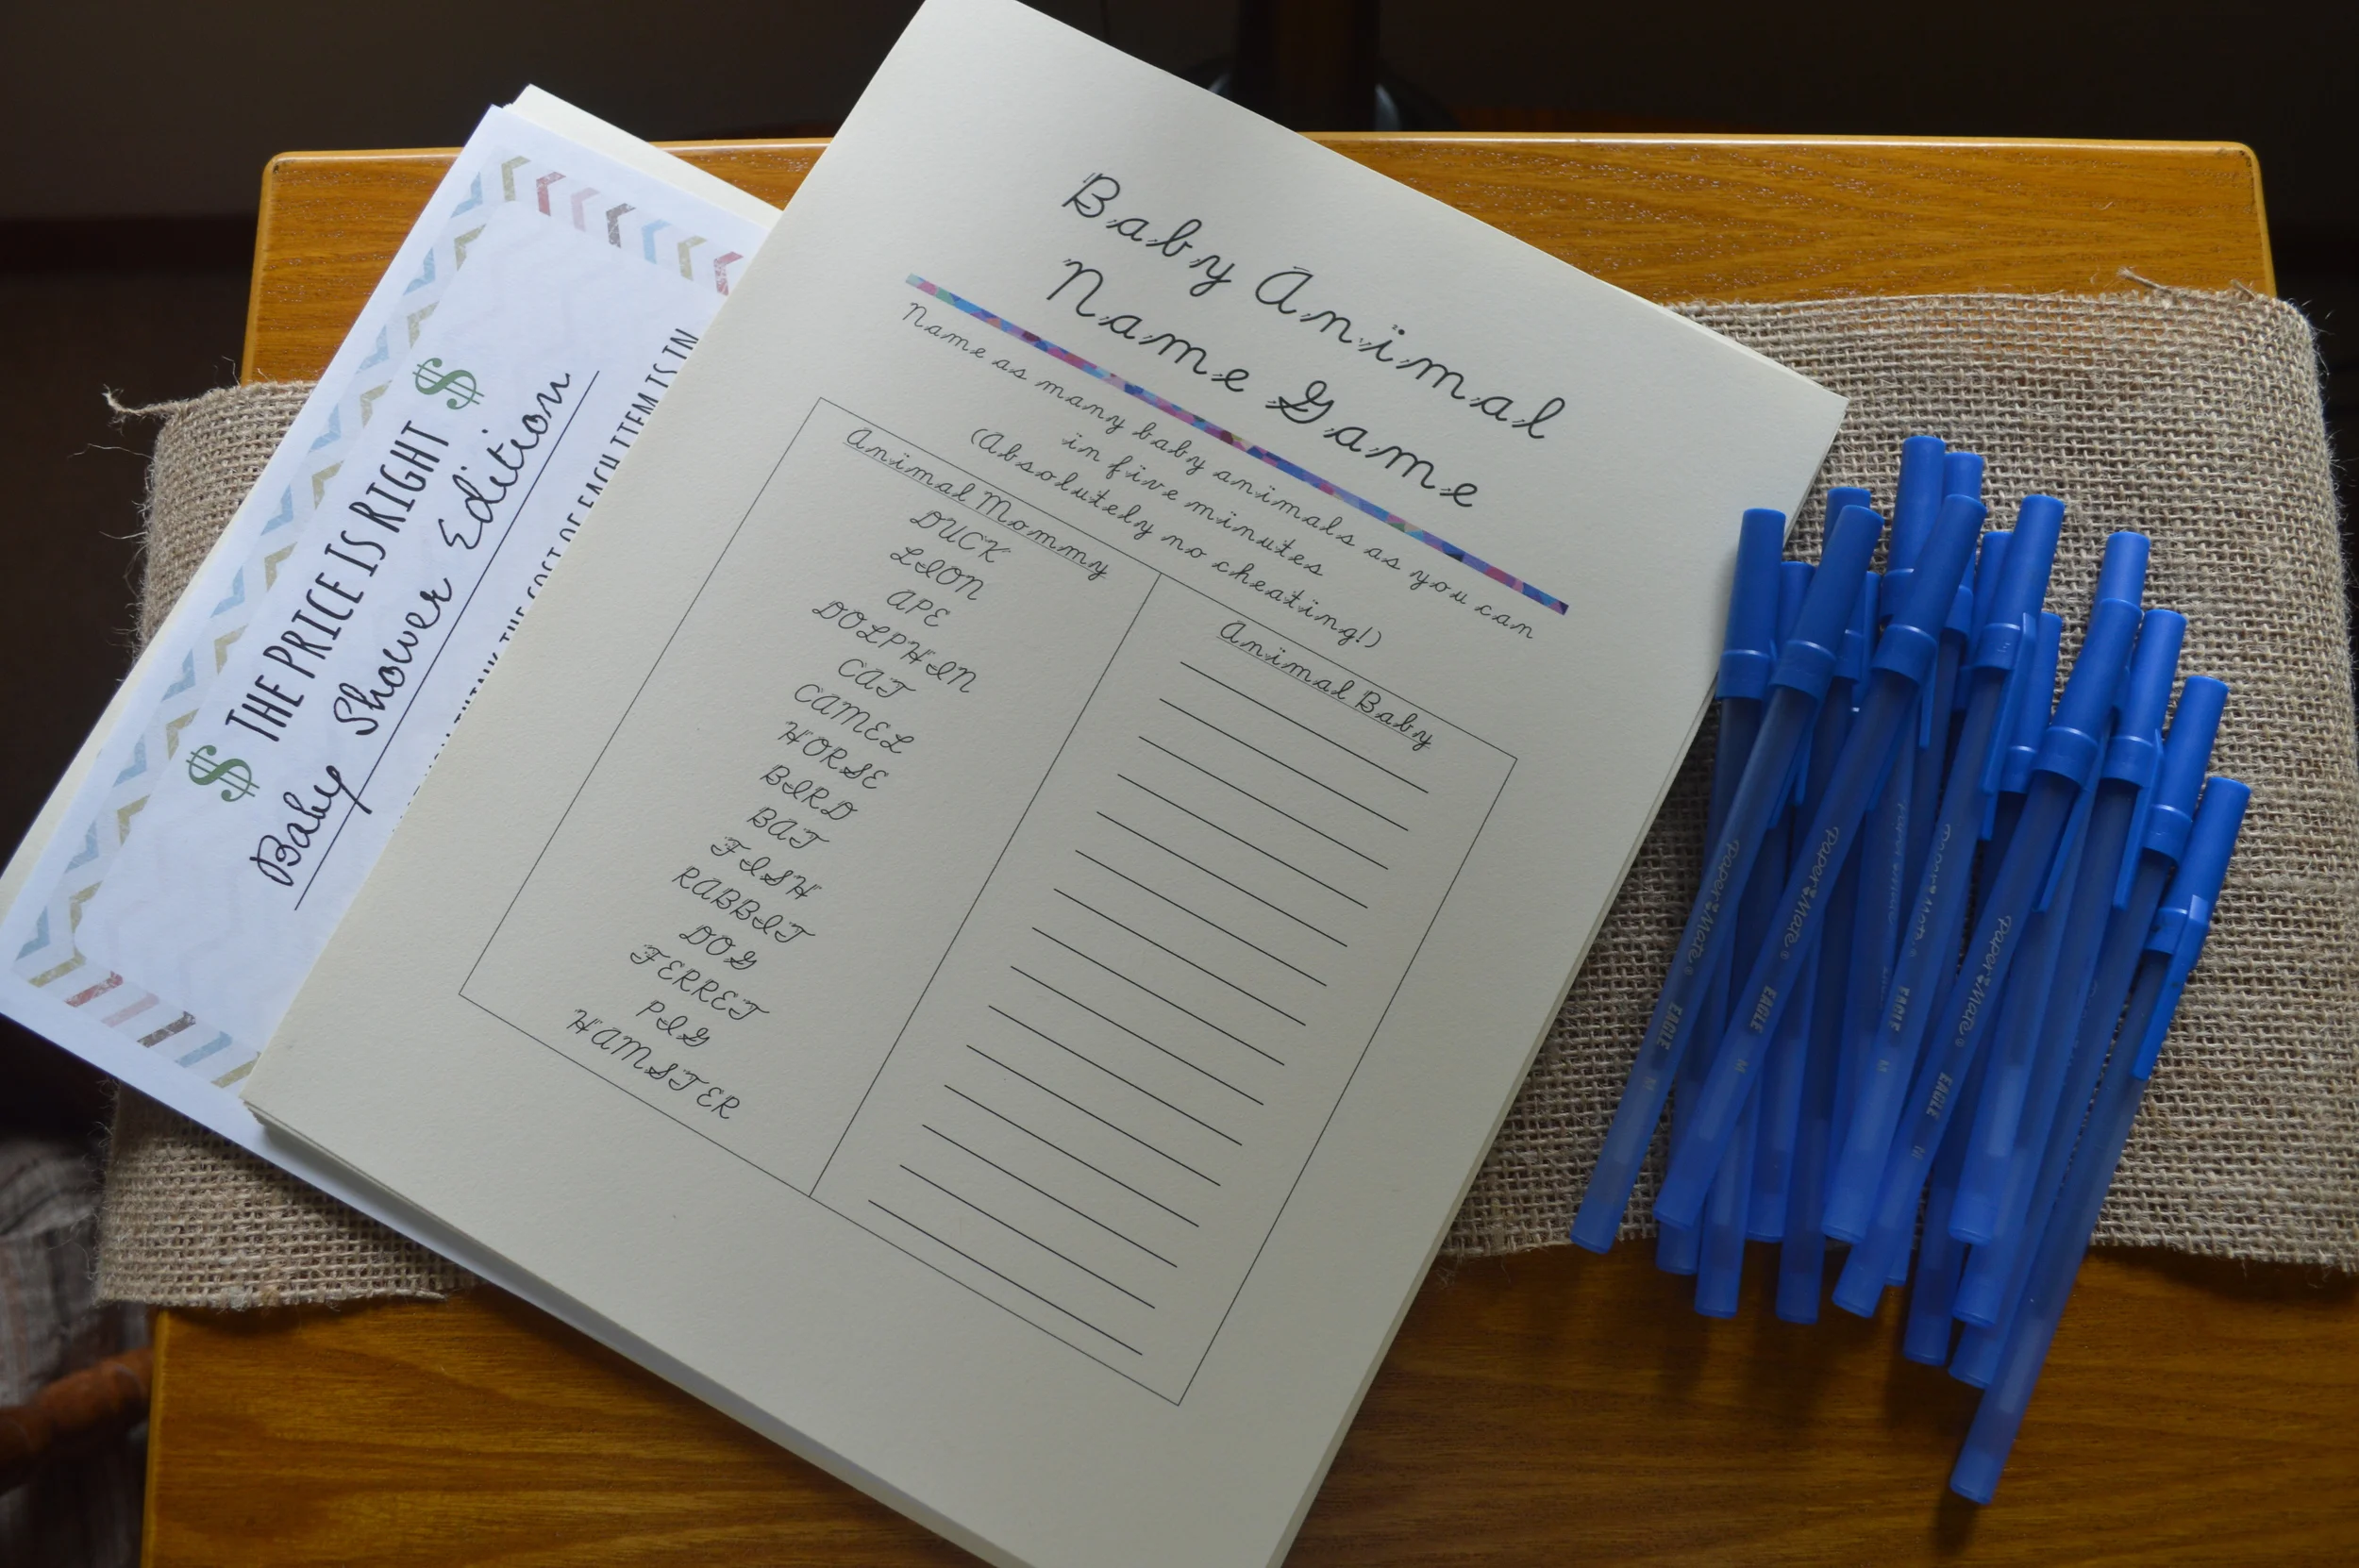 $ THE PRICE IS RIGHT $
Baby Shower Edition
THE COST OF EACH ITEM IS IN
Baby Animal
Name Game
Name as many baby animals as you can
in five minutes
(Absolutely no cheating!)
Animal Mommy
DUCK
LION
APE
DOLPHIN
CAT
CAMEL
HORSE
BIRD
BAT
FISH
RABBIT
DOG
FERRET
PIG
HAMSTER
Animal Baby
Paper Mate® EAGLE M
Paper Mate® EAGLE M
Paper Mate® EAGLE M
Paper Mate® EAGLE M